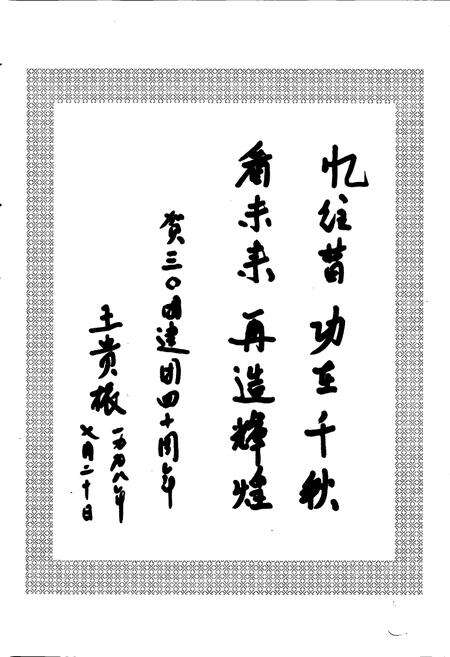 忆往昔 功在千秋
看未来 再造辉煌
贺三〇四建团四十周年
王贵振
一九九八年
七月二十日